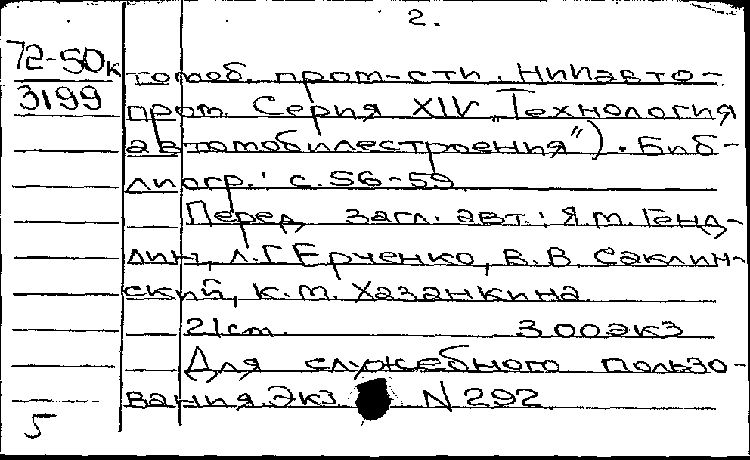 2.
72-50к
3199
томоб. пром-сти. НИИавто-
пром. Серия XIV „Технология
автомобилестроения"). Биб-
лиогр.: с. 56-59
Перед загл. авт.: Я.М. Генд-
лин, Л.Г. Ерченко, В.В. Саклин-
ский, К.М. Хазанкина
21см. 300экз
Для служебного пользо-
вания. Экз N 292
5